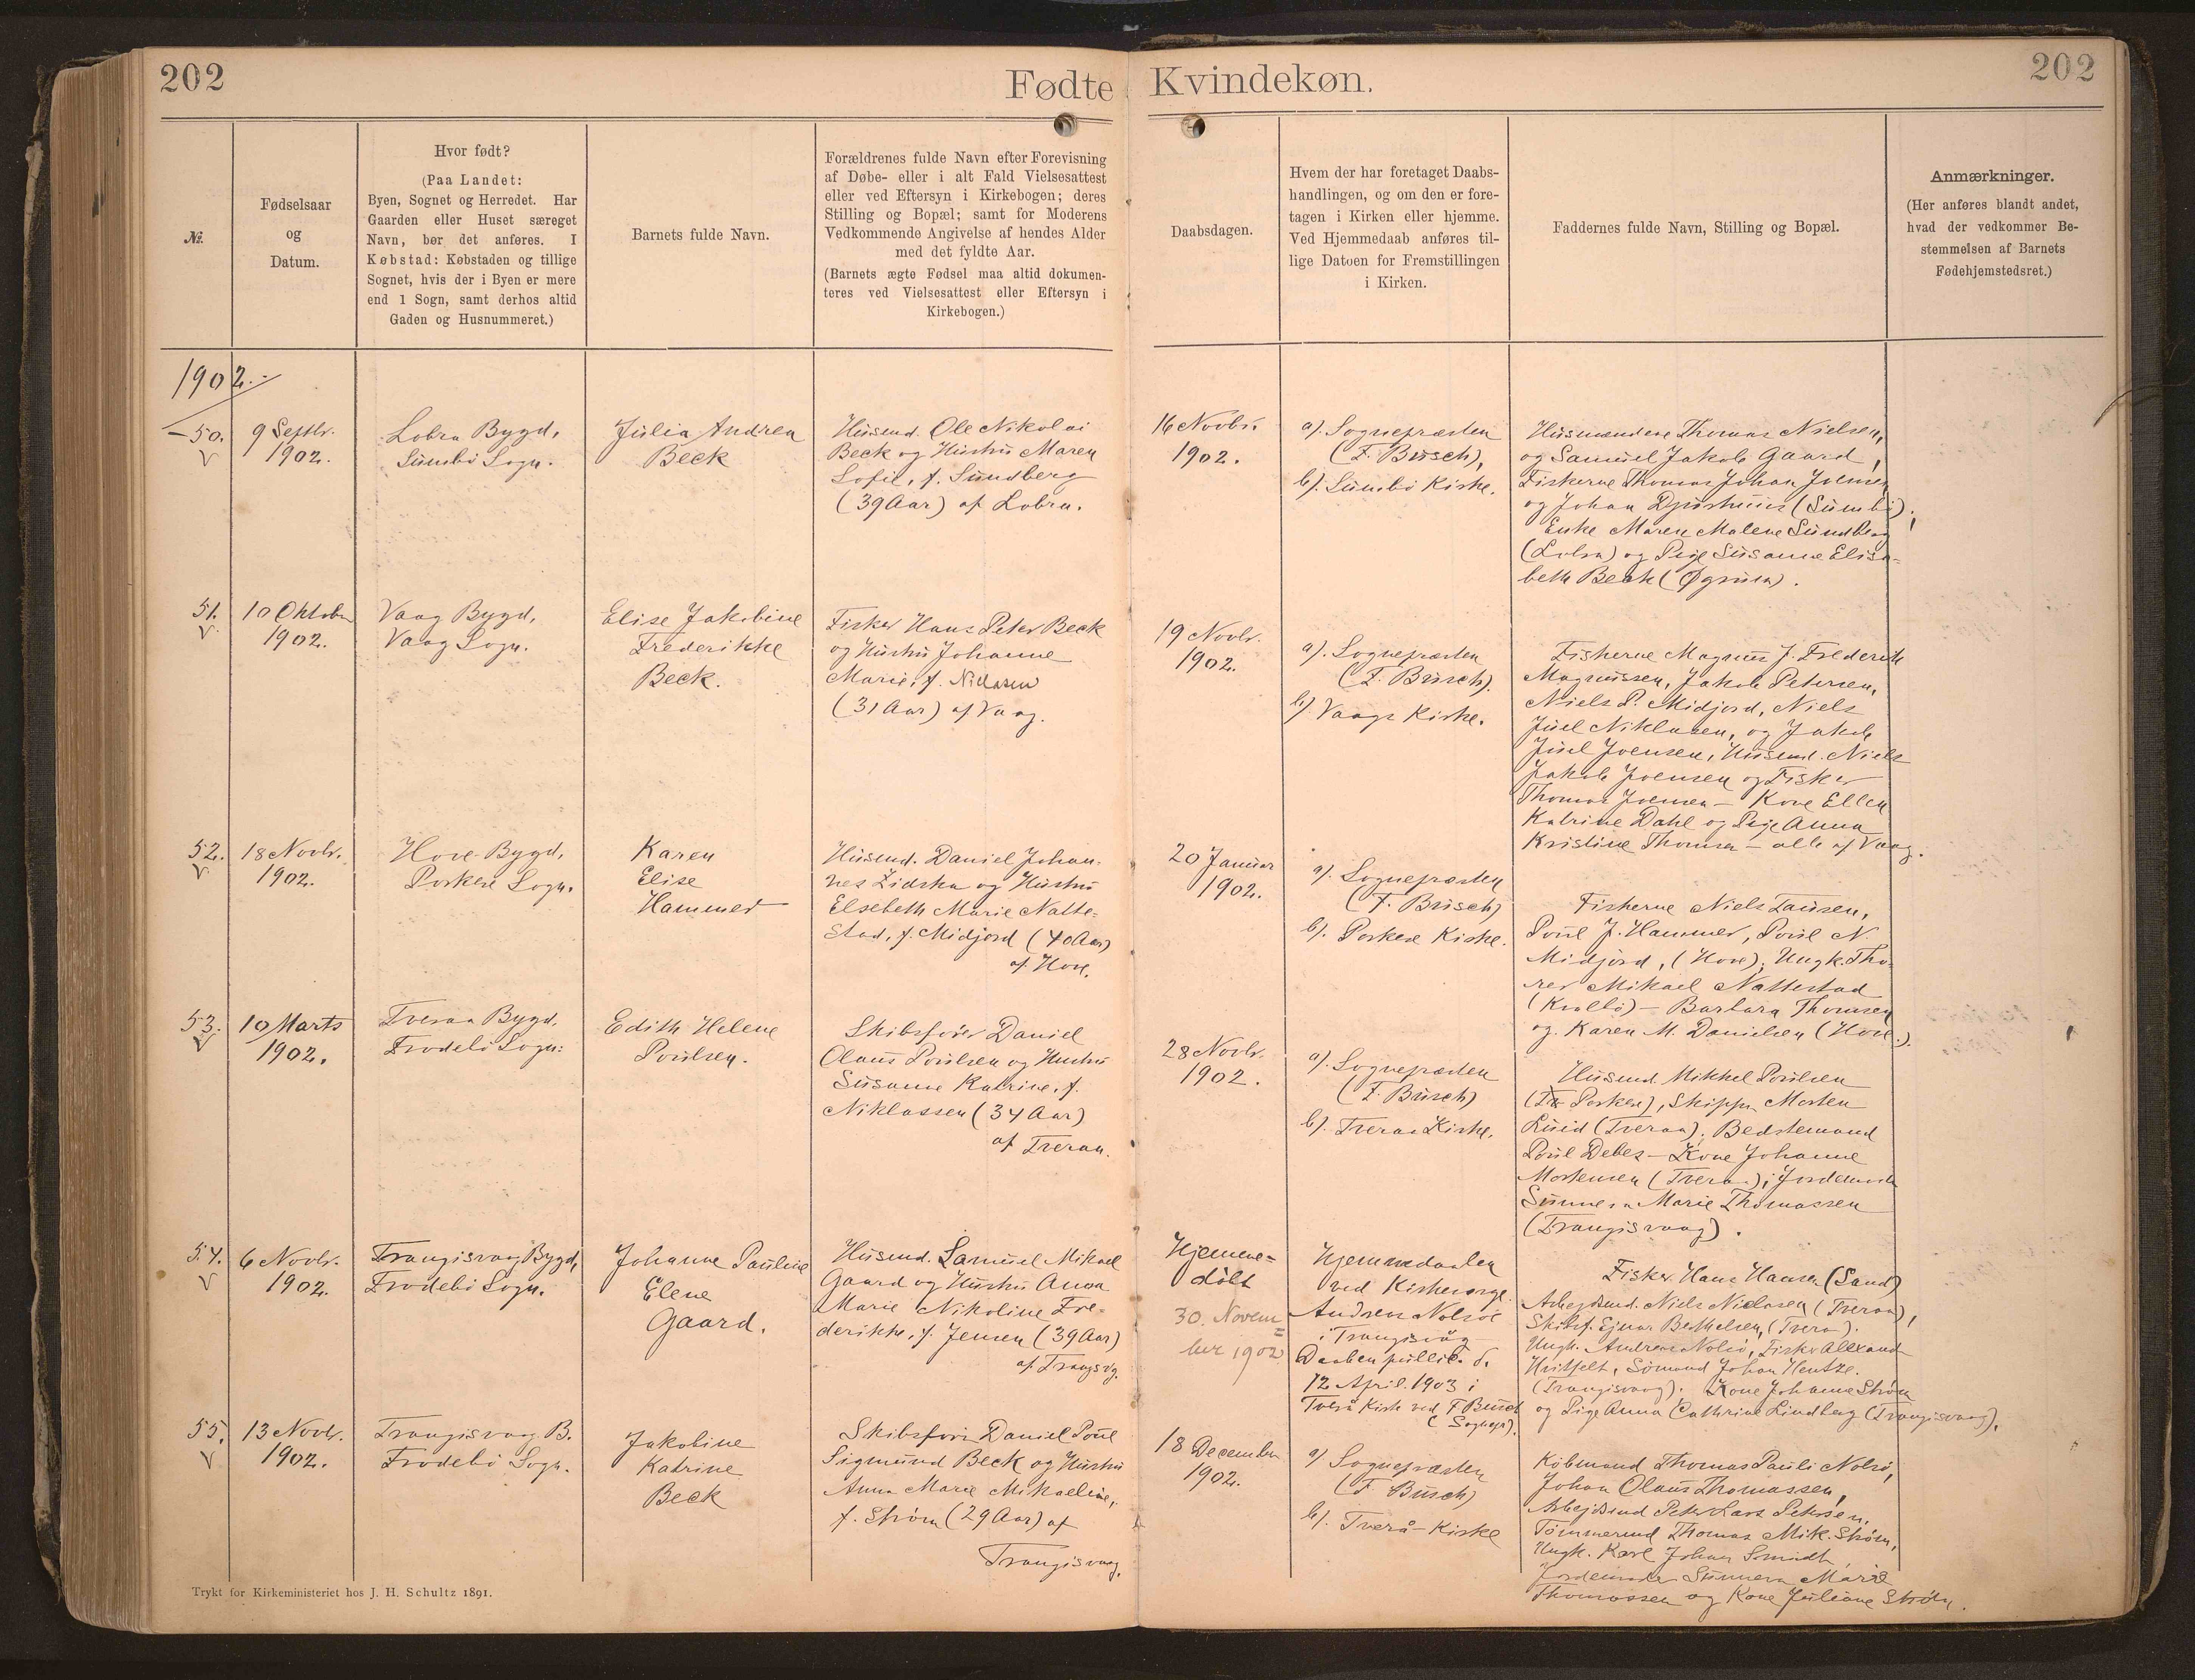 202
Fødte
Kvindekøn.
202
№.
Fødselsaar
og
Datum.
Hvor født?
(Paa Landet:
Byen, Sognet og Herredet. Har
Gaarden eller Huset særeget
Navn, bør det anføres. I
Købstad: Købstaden og tillige
Sognet, hvis der i Byen er mere
end 1 Sogn, samt derhos altid
Gaden og Husnummeret.)
Barnets fulde Navn.
Forældrenes fulde Navn efter Forevisning
af Døbe- eller i alt Fald Vielsesattest
eller ved Eftersyn i Kirkebogen; deres
Stilling og Bopæl; samt for Moderens
Vedkommende Angivelse af hendes Alder
med det fyldte Aar.
(Barnets ægte Fødsel maa altid dokumen-
teres ved Vielsesattest eller Eftersyn i
Kirkebogen.)
Daabsdagen.
Hvem der har foretaget Daabs-
handlingen, og om den er fore-
tagen i Kirken eller hjemme.
Ved Hjemmedaab anføres til-
lige Datoen for Fremstillingen
i Kirken.
Faddernes fulde Navn, Stilling og Bopæl.
Anmærkninger.
(Her anføres blandt andet,
hvad der vedkommer Be-
stemmelsen af Barnets
Fødehjemstedsret.)
1902.
50.
9 Septbr.
1902.
Lobra Bygd,
Sumbö Sogn.
Júlia Andrea
Beck
Húsmd. Ole Nikolai
Beck og Hústrú Maren
Sofie, f. Súndberg
(39 Aar) af Lobra.
16 Novbr.
1902.
a). Sognepræsten
(F. Búsch),
b). Súmbö Kirke.
Húsmændene Thomas Nielsen,
og Samúel Jakob Gaard,
Fiskerne Thomas Johan Joensen
og Johan Djúrhuus (Súmbö);
Enke Maren Malene Súndberg
(Lobra) og Pige Súsanne Elisa-
beth Beck (Øgrum).
51.
10 Oktober
1902.
Vaag Bygd,
Vaag Sogn.
Elise Jakobine
Frederikke
Beck.
Fisker Hans Peter Beck
og Hústrú Johanne
Marie, f. Niclasen
(31 Aar) af Vaag.
19 Novbr.
1902.
a). Sognepræsten
(F. Búsch).
b). Vaags Kirke.
Fiskerne Magnús J. Frederik
Magnússen, Jakob Petersen,
Niels P. Midjord, Niels
Júel Niklasen, og Jakob
Júel Joensen, Húsmd. Niels
Jakob Joensen og Fisker
Thomas Joensen – Kone Ellen
Katrine Dahl og Pige Anna
Kristine Thomsen – alle af Vaag.
52.
18 Novbr.
1902.
Hove Bygd,
Porkere Sogn.
Karen
Elise
Hammer
Húsmd. Daniel Johan-
nes Zidska og Hústrú
Elsebeth Marie Natte-
stad, f. Midjord (40 Aar)
af Hove.
20 Januar
1902.
a). Sognepræsten
(F. Búsch)
b). Porkere Kirke.
Fiskerne Niels Taúsen,
Poúl J. Hammer, Poúl N.
Midjord, (Hove); Ungk. Tho-
res Mikael Nattestad
(Kvalbö) – Barbara Thomsen
og Karen M. Danielsen (Hove).
53.
10 Marts
1902.
Tveraa Bygd,
Frodebö Sogn.
Edith Helene
Poúlsen.
Skibsfører Daniel
Olaús Poúlsen og Hústrú
Súsanne Katrine, f.
Niklassen (34 Aar)
af Tveraa.
28 Novbr.
1902.
a). Sognepræsten
(F. Búsch)
b). Tveraa Kirke.
Húsmd. Mikkel Poúlsen
(Porkere), Skipper Morten
(Tveraa), Bedstemand
Poúl Debes – Kone Johanne
Mortensen (Tveraa); Jordemoder
Súnneva Marie Thomassen
(Trangisvaag).
54.
6 Novbr.
1902.
Trangisvaag Bygd,
Frodebö Sogn.
Johanne Paúline
Elene
Gaard.
Húsmd. Samúel Mikael
Gaard og Hústrú Anna
Marie Nikoline Fre-
derikke, f. Jensen (39 Aar)
af Trangsvg.
Hjemme-
döbt
30. Novem-
ber 1902
Hjemmedaaben
ved Kirkeværge
Andreas Nolsöe
i Trangisvåg
Daaben public. d.
12 April 1903 i
Tverå Kirke ved F. Búsch
(Sognepr).
Fisker Hans Hansen (Sand)
Arbejdsmd. Niels Niclasen (Tveraa),
Skibsf. Ejnar Berthelsen, (Tveraa).
Ungk. Andreas Nolsö, Fisker Alexand
Hvitfelt, Sömand Johan Hentze.
(Trangisvaag). Kone Johanne Ström
og Pige Anna Cathrine Lindberg (Trangisvaag).
55.
13 Novbr.
1902.
Trangisvaag B.
Frodebö Sogn.
Jakobine
Katrine
Beck
Skibsfører Daniel Poúl
Sigmúnd Beck og Hústrú
Anna Marie Mikaeline,
f. Ström (29 Aar) af
Trangisvaag.
18 December
1902.
a) Sognepræsten
(F. Búsch)
b). Tverå-Kirke
Købmand Thomas Pauli Nolsö,
Johan Olaús Thomassen,
Arbejdsmd Peter Lars Petersen,
Tömmermd Thomas Mik. Ström,
Ungk. Karl Johan Smidt,
Jordemoder Súnneva Marie
Thomassen og Kone Júliane Ström.
Trykt for Kirkeministeriet hos J. H. Schultz 1891.